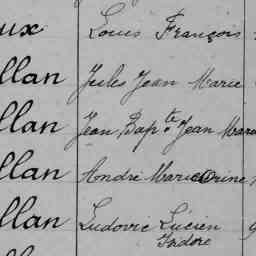 ux Louis François
llan Jules Jean Marie
llan Jean Bap.te Jean Marie
llan André Marie
llan Ludovic Lucien
Isidore